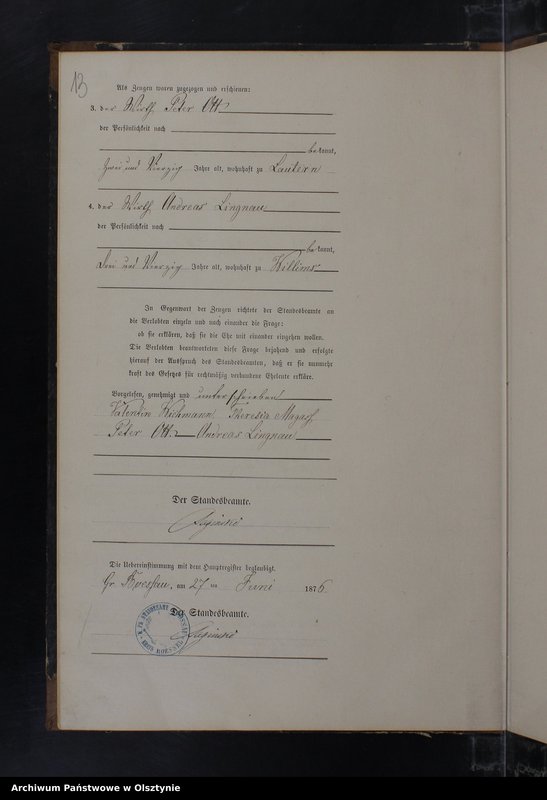 13
Als Zeugen waren zugezogen und erschienen:
3. der Wirth Peter Ott
der Persönlichkeit nach
bekannt,
Zwei und Vierzig Jahre alt, wohnhaft zu Lautern
4. der Wirth Andreas Lingnau
der Persönlichkeit nach
bekannt,
Drei und Vierzig Jahre alt, wohnhaft zu Willims
In Gegenwart der Zeugen richtete der Standesbeamte an
die Verlobten einzeln und nach einander die Frage:
ob sie erklären, daß sie die Ehe mit einander eingehen wollen.
Die Verlobten beantworteten diese Frage bejahend und erfolgte
hierauf der Ausspruch des Standesbeamten, daß er sie nunmehr
kraft des Gesetzes für rechtmäßig verbundene Eheleute erkläre.
Vorgelesen, genehmigt und unterschrieben
Valentin Wichmann Theresia
Peter Ott Andreas Lingnau
Der Standesbeamte.
Die Uebereinstimmung mit dem Hauptregister beglaubigt.
Gr. Boessau, am 27 ten Juni 1876.
Der Standesbeamte.
KREIS ROESSEL
Archiwum Państwowe w Olsztynie